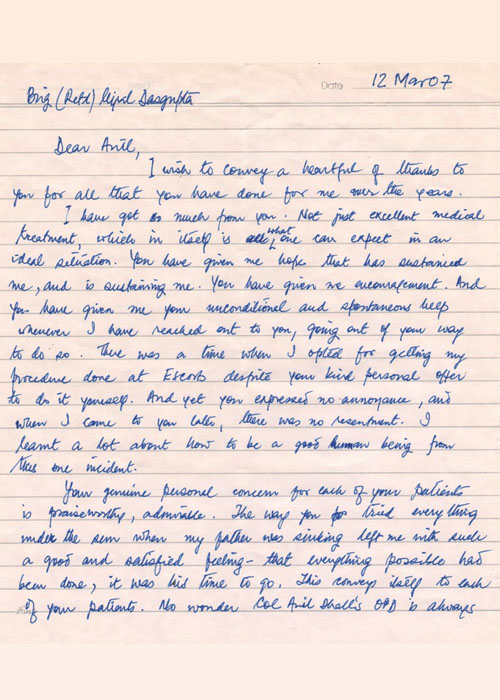 Date 12 Mar 07
Brig (Retd) Dasgupta
Dear Anil,
I wish to convey a heartful of thanks to
you for all that you have done for me over the years.
I have got so much from you. Not just excellent medical
treatment, which in itself is all what one can expect in an
ideal situation. You have given me hope that has sustained
me, and is sustaining me. You have given me encouragement. And
you have given me your unconditional and spontaneous help
whenever I have reached out to you, going out of your way
to do so. There was a time when I opted for getting my
procedure done at Escorts despite your kind personal offer
to do it yourself. And yet you expressed no annoyance, and
when I came to you later, there was no resentment. I
learnt a lot about how to be a good human being from
this one incident.
Your genuine personal concern for each of your patients
is praiseworthy, admirable. The way you tried everything
under the sun when my father was sinking left me with such
a good and satisfied feeling - that everything possible had
been done, it was his time to go. This conveys itself to each
of your patients. No wonder Col Anil Dhall's OPD is always